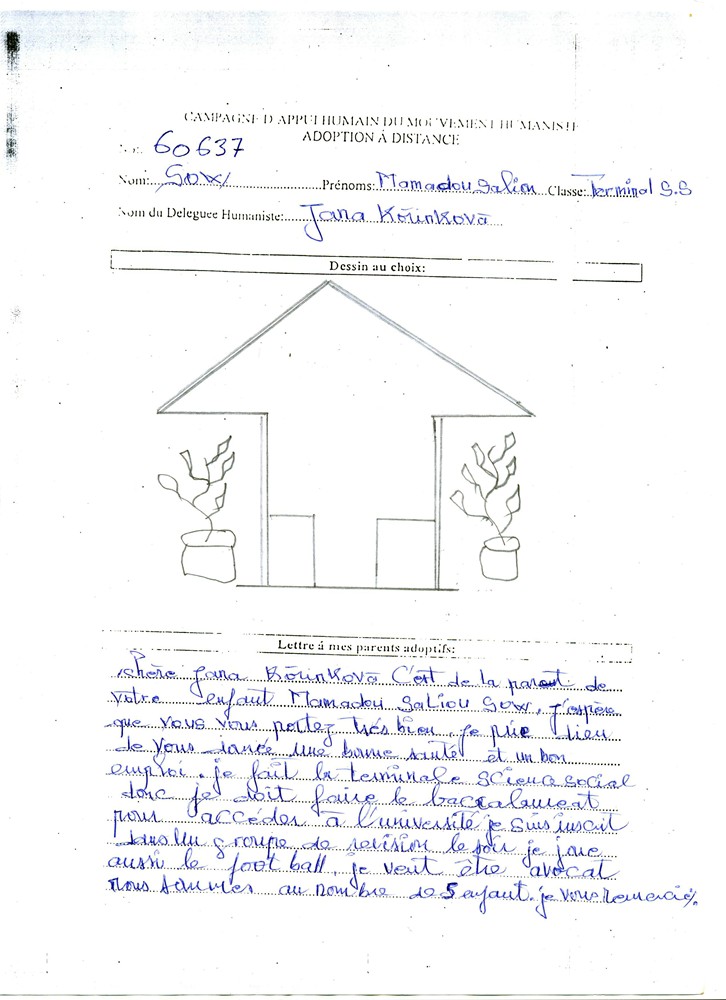 CAMPAGNE D'APPUI HUMAIN DU MOUVEMENT HUMANISTE
ADOPTION À DISTANCE
No: 60637
Nom: Sow Prénoms: Mamadou Saliou Classe: Terminal S.S
Nom du Deleguee Humaniste: Jana Kőrinkovā
Dessin au choix:
Lettre á mes parents adoptifs:
chère Jana Kőrinkovā C'est de la parout de
votre enfant Mamadou Saliou Sow, j'espère
que vous vous portez très bien. je prie Dieu
de vous une bonne santé et un bon
emploi. je fait la terminale science social
donc je doit faire le baccalaureat
pour accéder à l'université je suis inscit
dans un groupe de revision le soir je joue
aussi le foot ball. je veut être avocat
nous sommes au nombre de 5 enfant. je vous remercie